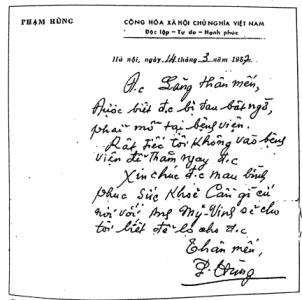 PHẠM HÙNG
CỘNG HÒA XÃ HỘI CHỦ NGHĨA VIỆT NAM
Độc lập - Tự do - Hạnh phúc
Hà nội, ngày 14 tháng 3 năm 1982
Đ/c Lăng thân mến,
Được biết đ/c bị đau bất ngờ,
phải mổ tại bệnh viện.
Rất tiếc tôi không vào bệnh
viện để thăm ngay đ/c
Xin chúc đ/c mau bình
phục sức khoẻ Cần gì cứ
nói với Ang Mỹ-Vinh sẽ cho
tôi biết để lo cho đ/c
Thân mến,
P. Hùng